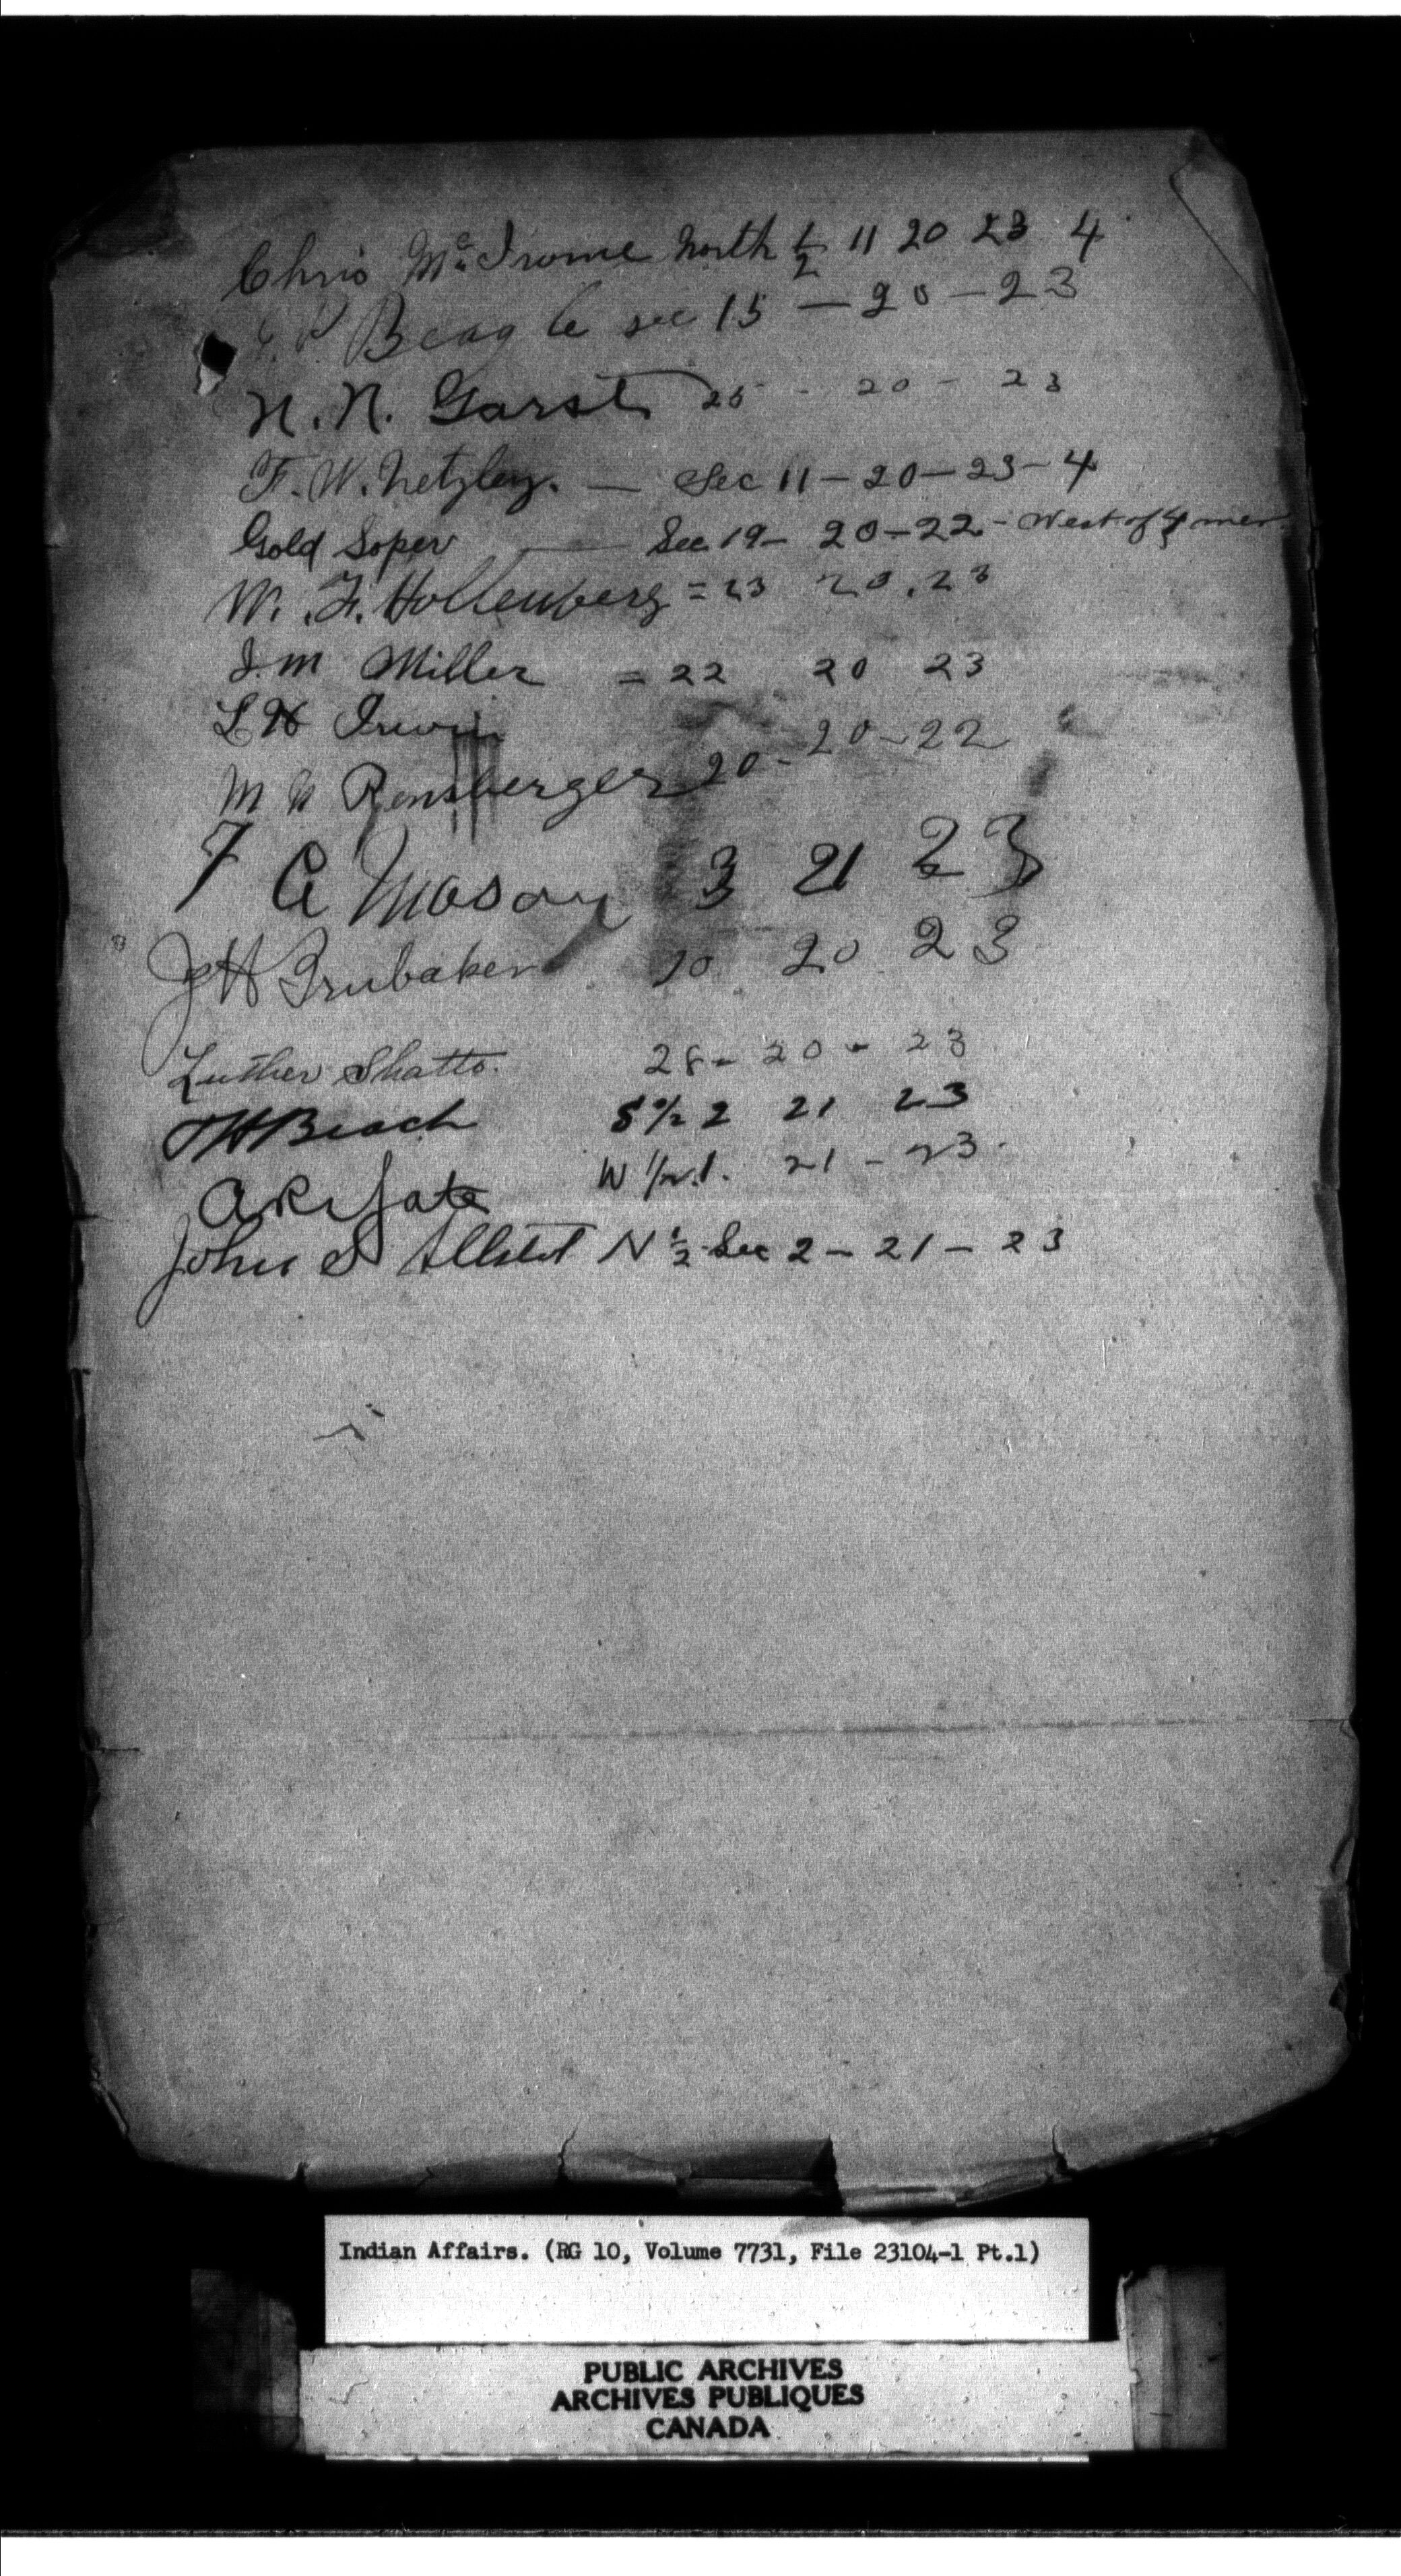 Chris McIrome North 1/2 11 20 23 4
Beagle sec 15 - 20 - 23
N. N. Garst 25 - 20 - 23
F. W. Netzley. - Sec 11 - 20 - 23 - 4
Gold Soper - Sec 19 - 20 - 22 - West of 4 mer
W. F. Hollenberg = 23 20. 23
J. M Miller = 22 20 23
L H Irwin
M Rensberger 20 - 20 - 22
F A Mason 3 21 23
J H Brubaker 10 20 23
Luther Shatto. 28 - 20 - 23
Beach S 1/2 2 21 23
A R W 1/2 1. 21 - 23.
John S N 1/2 Sec 2 - 21 - 23
Indian Affairs. (RG 10, Volume 7731, File 23104-1 Pt.1)
PUBLIC ARCHIVES
ARCHIVES PUBLIQUES
CANADA